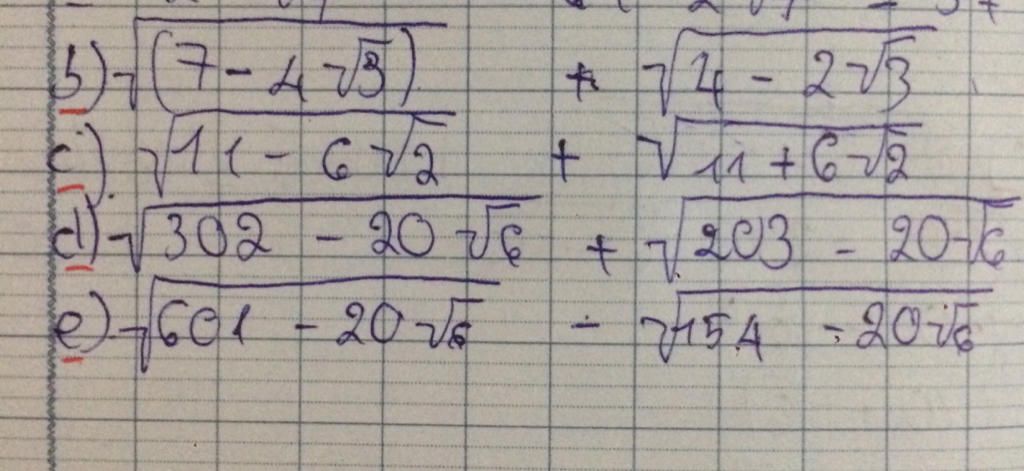 b) √(7 - 4√3) + √4 - 2√3
c) √11 - 6√2 + √11 + 6√2
d) √302 - 20√6 + √203 - 20√6
e) √601 - 20√6 - √154 - 20√6